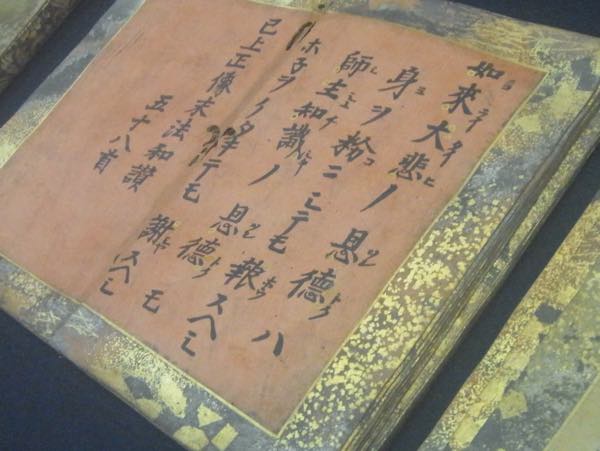 如来大悲ノ恩徳ハ
身ヲ粉ニシテモ報スヘシ
師主知識ノ恩徳モ
ホネヲクタキテモ謝スヘシ
已上正像末法和讃
五十八首